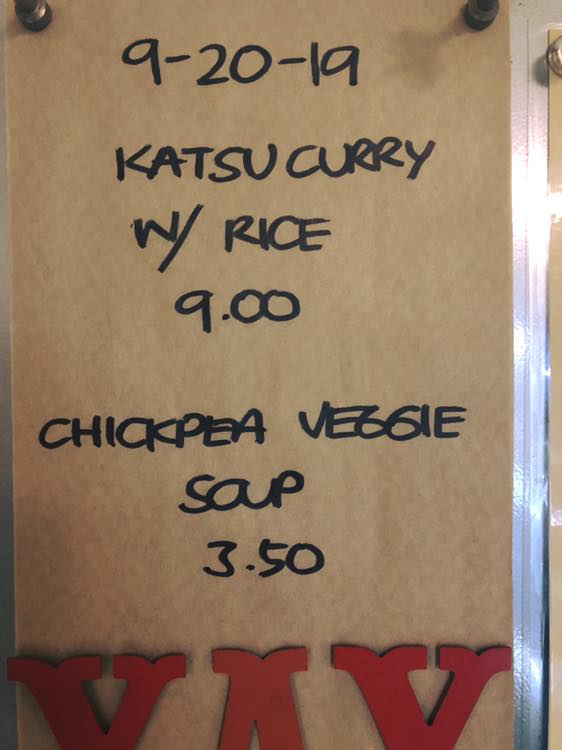 9-20-19
KATSU CURRY
W/ RICE
9.00
CHICKPEA VEGGIE
SOUP
3.50
YAY